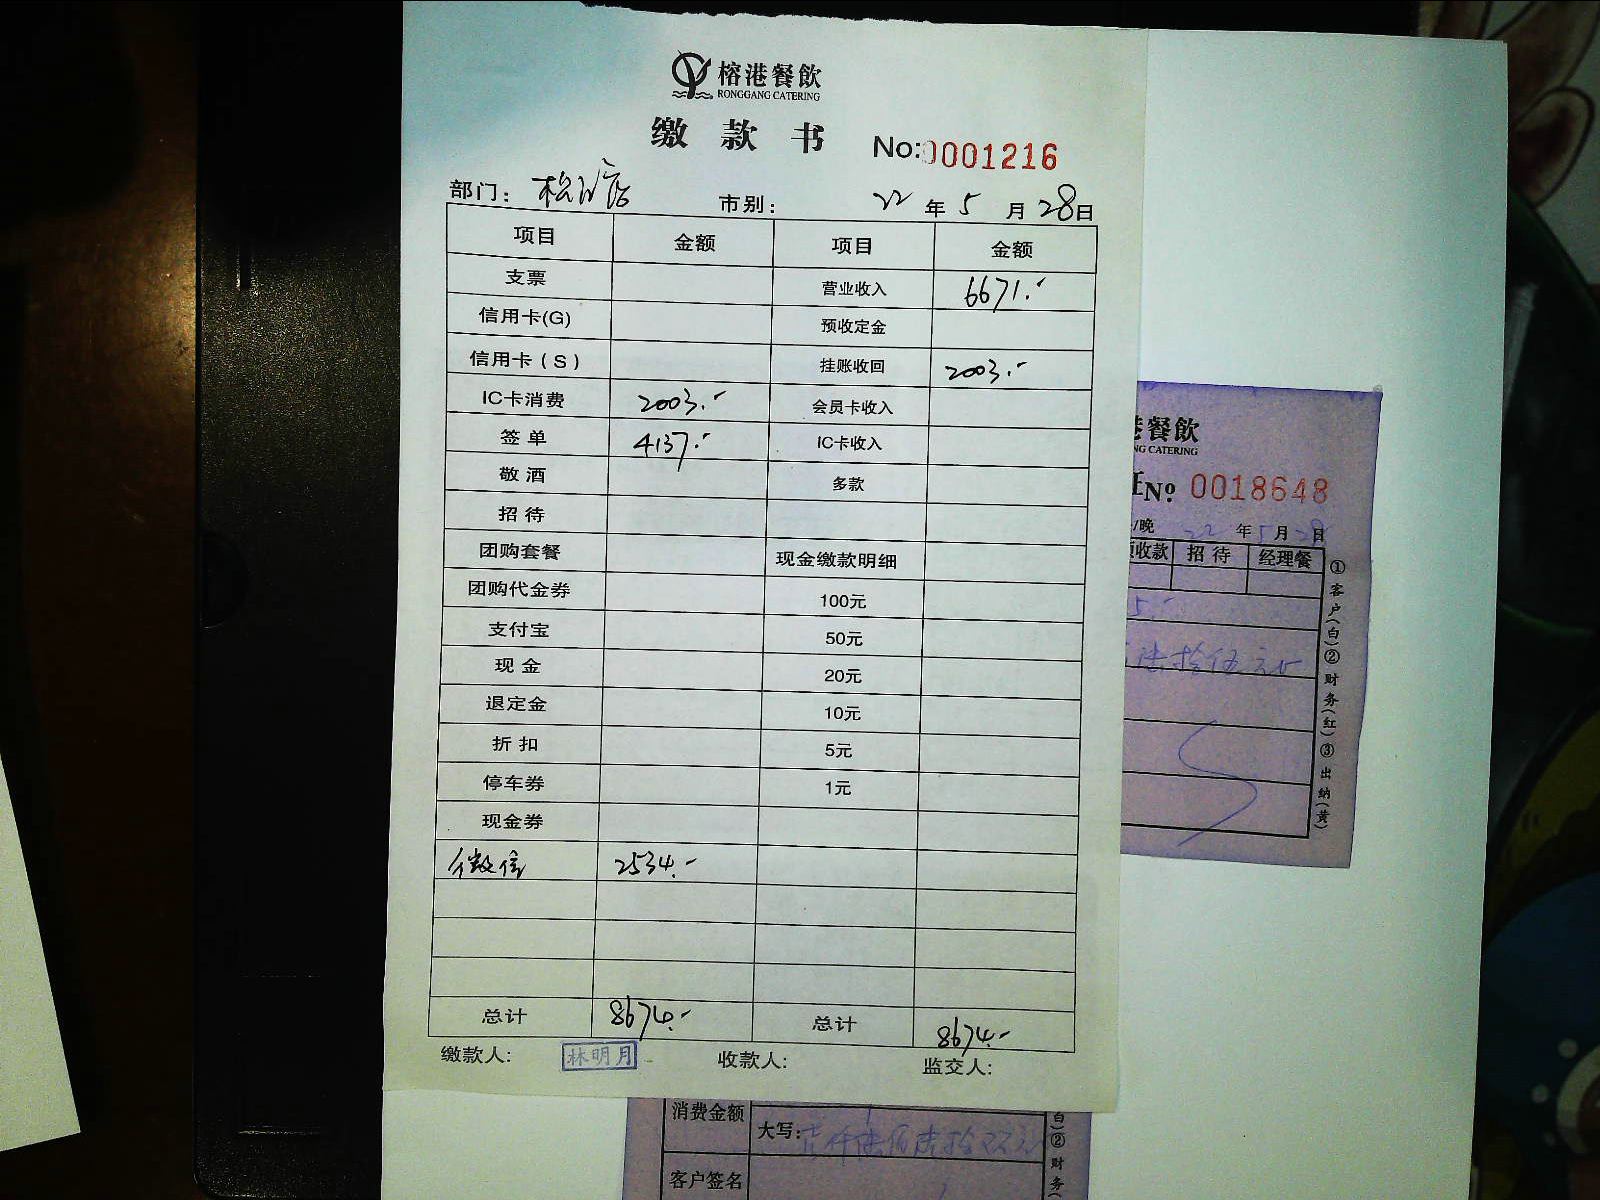 榕港餐飲
RONGGANG CATERING
缴 款 书 No:0001216
部门: 市别: 22 年 5 月 28 日
项目 金额 项目 金额
支票 营业收入 6671.-
信用卡(G) 预收定金
信用卡(S) 挂账收回 2003.-
IC卡消费 2003.- 会员卡收入
签单 4137.- IC卡收入
敬酒 多款
招待
团购套餐 现金缴款明细
团购代金券 100元
支付宝 50元
现金 20元
退定金 10元
折扣 5元
停车券 1元
现金券
微信 2534.-
总计 8674.- 总计 8674.-
缴款人: 林明月 收款人: 监交人:
港餐飲
NG CATERING
证No 0018648
/晚 22 年 5 月 28 日
预收款 招待 经理餐
5.-
拾伍元
①客户(白)②财务(红)③出纳(黄)
消费金额 大写:
客户签名
白)②财务(